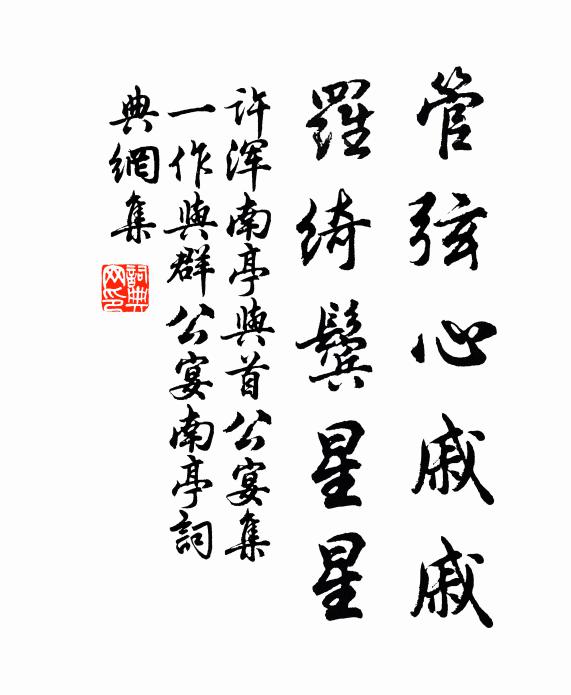 管弦心戚戚
羅綺鬢星星
許渾南亭與首公宴集
一作與群公宴南亭詞
典網集
詞典网印